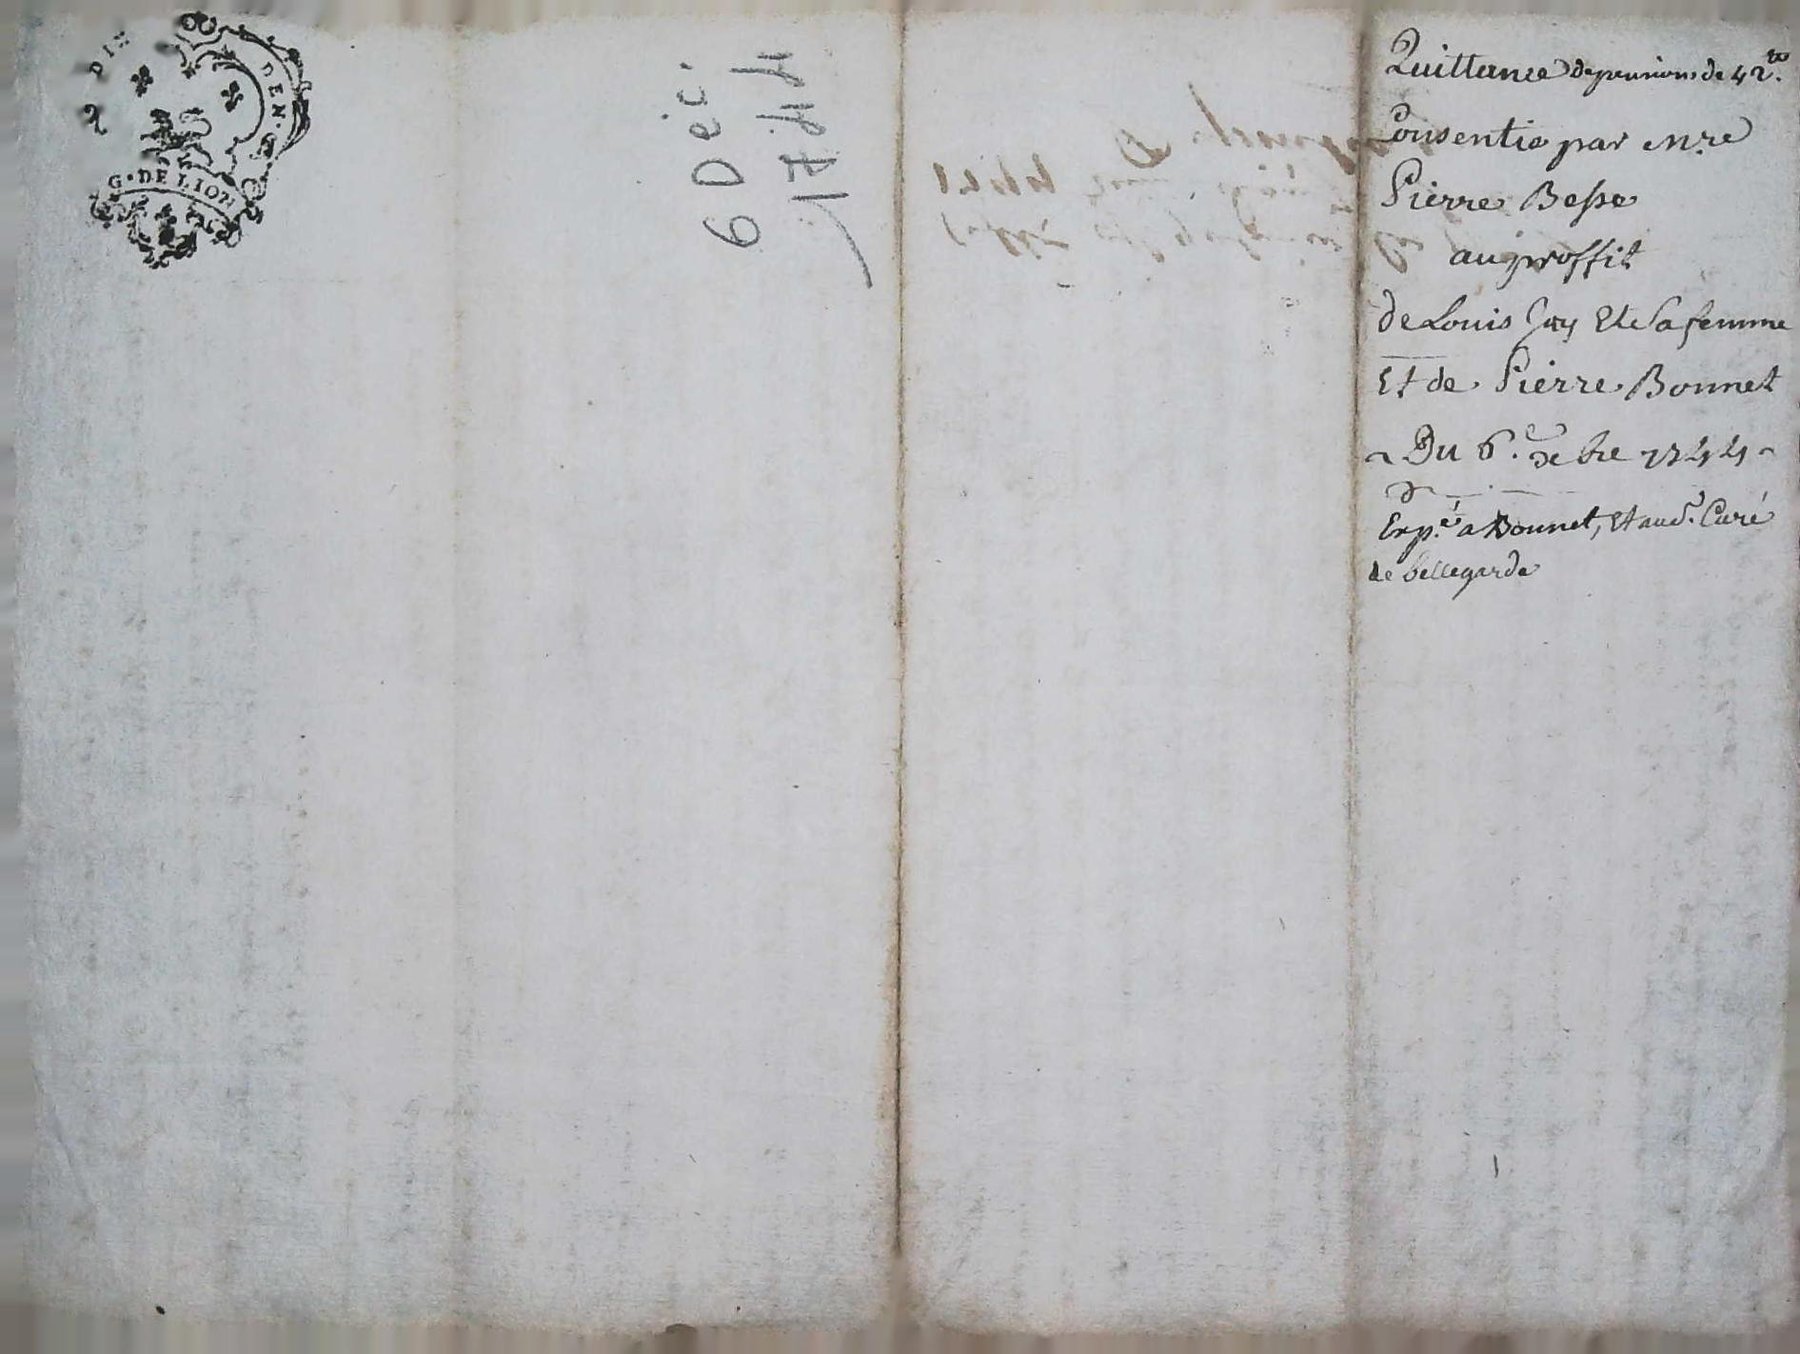 DIX DEN.
G. DE LION
6 Déc.
1744
Quittance de pensions de 42.tt
Consentie par M.re
Pierre Besse
au proffit
de Louis Et de Sa femme
Et de Pierre Bonnet
Du 6.e xbre 1744
Exp.é a Bonnet, Et aud. Curé
de bellegarde